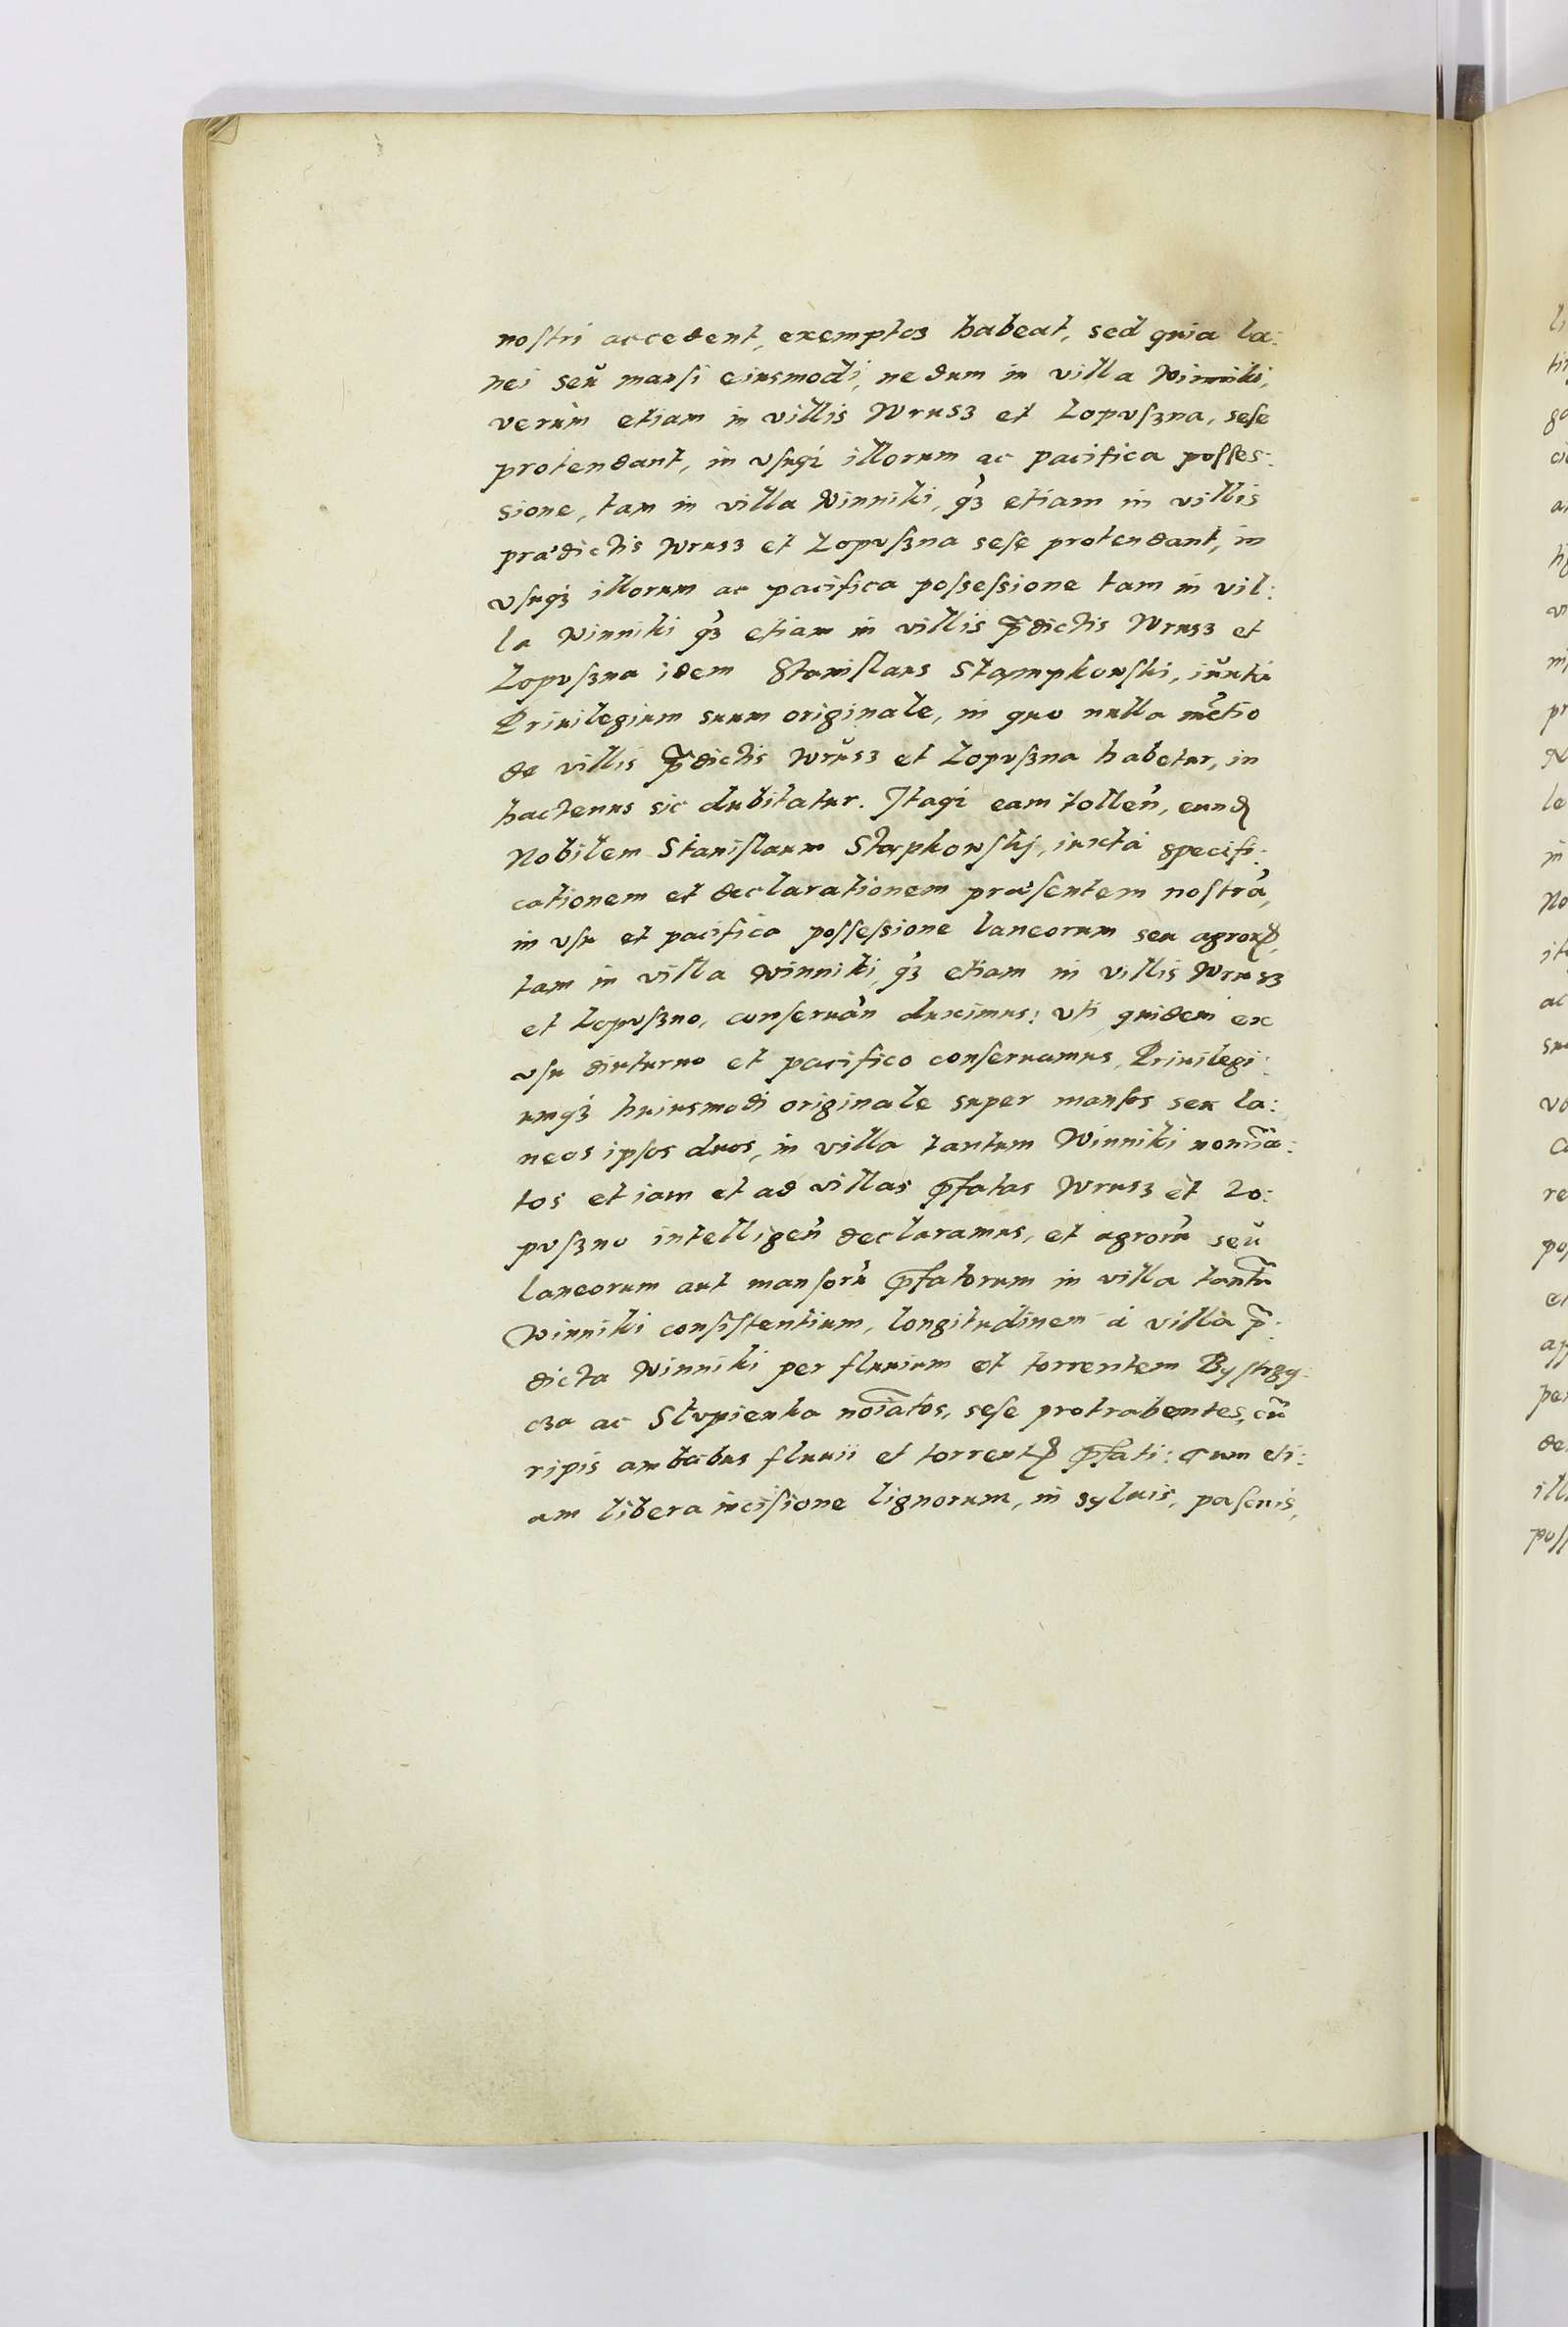 nostri accedent, exemptos habeat, sed quia la:
nei seŭ mansi eiusmodi, nedum in villa Winniki,
verùm etiam in villis Wrusz et Lopuszna, sese
protendant, in usuqȝ illorum ac pacifica posses:
sione, tam in villa Winniki, qȝ etiam in villis
prædictis Wrusz et Lopuszna sese protendant, in
usuqȝ illorum ac pacifica possessione tam in vil:
la Winniki qȝ etiam in villis p̄dictis Wrusz et
Lopuszna idem Stanislaus Stampkowski, iuxta
Priuilegium suum originale, in quo nulla mētio
de villis p̄dictis Wrŭsz et Lopuszna habetur, in
hactenus sic dubitatur. Itaqȝ eam tollen̄, eund
Nobilem Stanislaum Stapkowskj, iuxtà specifi:
cationem et declarationem præsentem nostrā,
in usu et pacifica possessione laneorum seu agroꝝ,
tam in villa Winniki, qȝ etiam in villis Wrusz
et Lopuszno, conseruan̄ duximus: uti quidem ex
usu diuturno et pacifico conseruamus, Priuilegi:
umqȝ huiusmodi originale super mansos seu la:
neos ipsos duos, in villa tantum Winniki nomīa:
tos etiam et ad villas p̄fatas Wrusz et Lo:
puszno intelligen̄ declaramus, et agrorū seŭ
laneorum aut mansorū p̄fatorum in villa tantū
Winniki consistentium, longitudinem à villa p̄:
dicta Winniki per fluuium et torrentem Bystrzy:
cza ac Stupienka noīatos, sese protrahentes, cū
ripis ambabus fluuii et torrent p̄fati: cum eti:
am libera incisione lignorum, in syluis, pascuis,